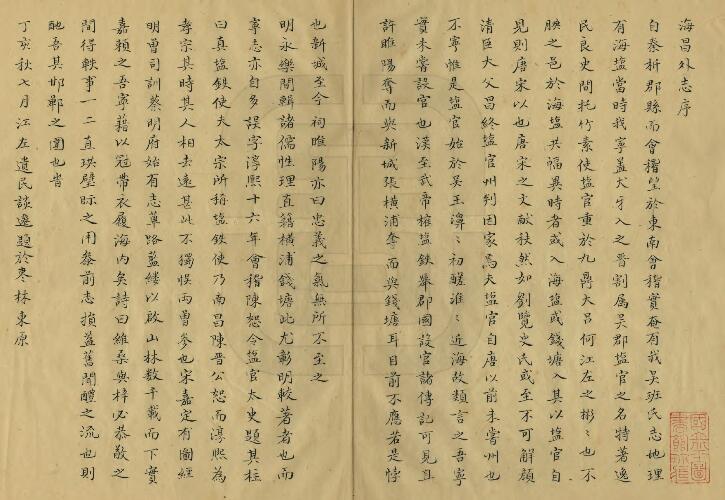 海昌外志序
自秦析郡縣而會稽望於東南會稽實奄有我吳班氏志地理
有海塩當時我寧蓋犬牙入之晉割属吳郡塩官之名特著逸
民良史間托竹素使塩官重於九鼎大吕何江左之彬〻也不
腆之邑於海塩共幅異時者或入海塩或錢塘入其以塩官自
見則唐宋以也唐宋之文献秩然如劉覽史氏或至不可解顏
清臣大父昌終塩官州判因家焉夫塩官自唐以前未嘗州也
不寧惟是塩官始於吴王濞〻初醝淮〻近海故類言之吾寧
實未嘗設官也漢至武帝榷塩鉄舉郡國設官諸傳記可見且
許睢陽奪而與新城張横浦奪而與錢塘耳目前不應若是悖
也新城至今祠睢陽亦曰忠義之氣無所不至之
明永樂間輯諸儒性理直籍横浦錢塘此尤彰明較著者也而
寧志亦自多誤字淳熙十六年會稽陳恕令塩官太史題其柱
曰真塩鉄使夫太宗所稱塩鉄使乃南昌陳晋公恕而淳熙為
孝宗其時其人相去遠甚此不獨悞両曽參也宋嘉定有圖經
明曽司訓蔡明府始有志蓽路藍縷以啟山林数千載而下實
嘉頼之吾寧藉以冠帶衣履海内矣詩曰維桑與梓必恭敬之
間得軼事一二直珙璧眎之用蔡前志損益舊聞醴之流也則
酏吾其邯鄲之圍也嘗
丁亥秋七月江左遺民談遷題於枣林東原